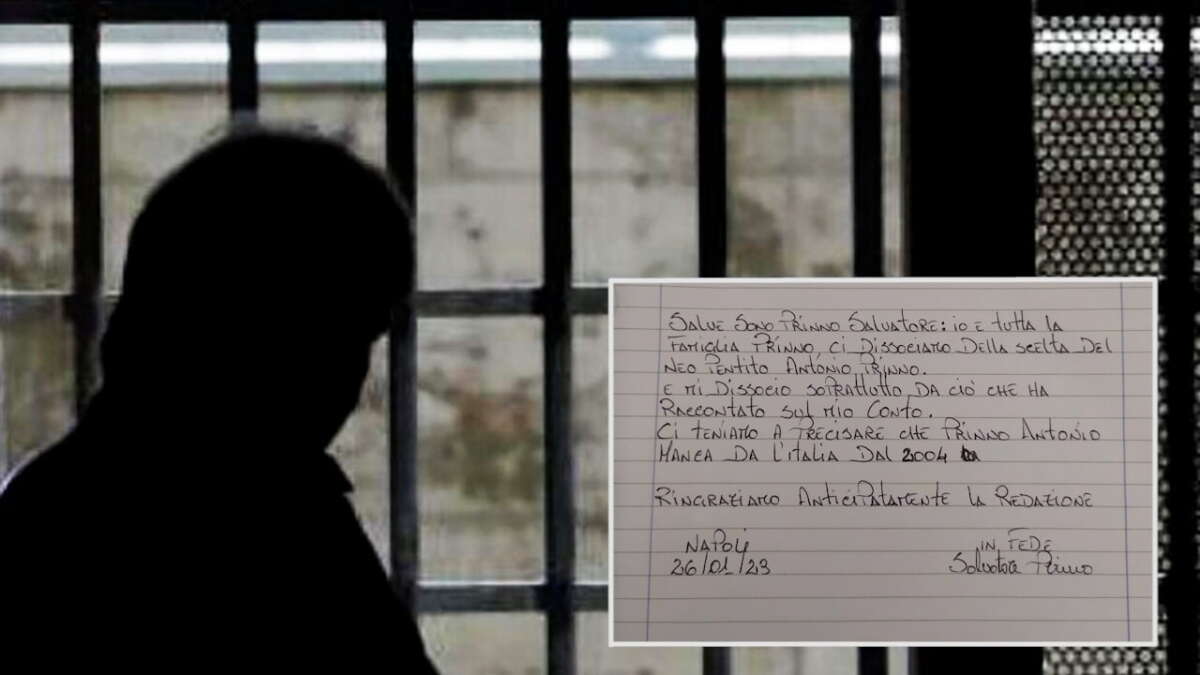 SALVE SONO PRINNO SALVATORE: IO E TUTTA LA
FAMIGLIA PRINNO, CI DISSOCIAMO DELLA SCELTA DEL
NEO PENTITO ANTONIO PRINNO.
E MI DISSOCIO SOPRATTUTTO DA CIÒ CHE HA
RACCONTATO SUL MIO CONTO.
CI TENIAMO A PRECISARE CHE PRINNO ANTONIO
MANCA DA L'ITALIA DAL 2004
RINGRAZIAMO ANTICIPATAMENTE LA REDAZIONE
NAPOLI
26/01/23
IN FEDE
Salvatore Prinno